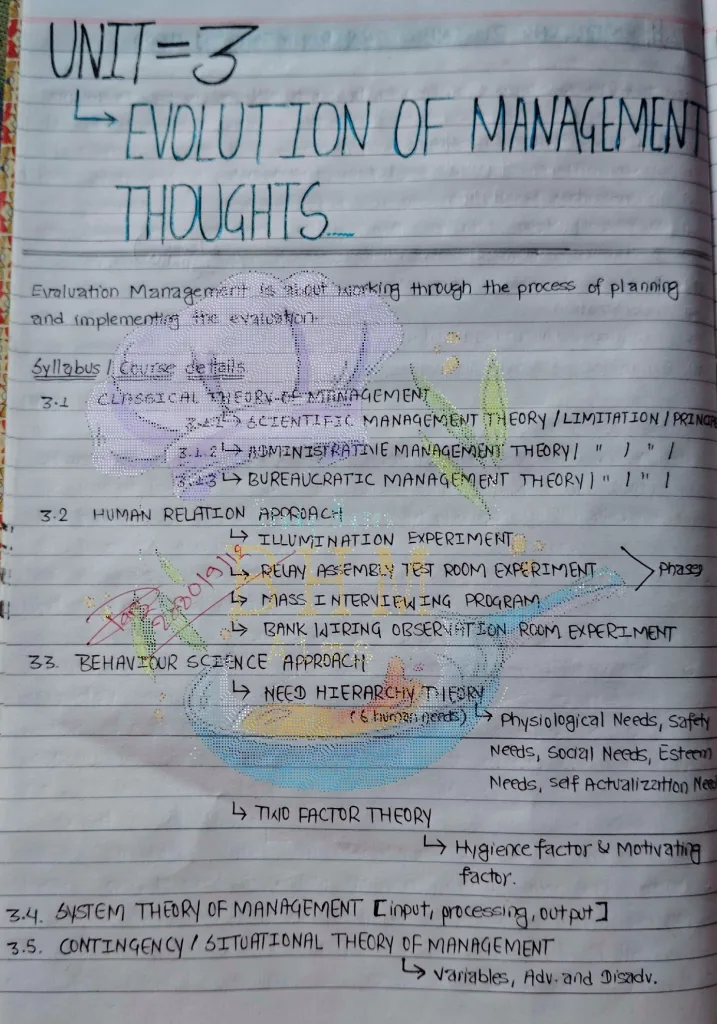 UNIT = 3
↳ EVOLUTION OF MANAGEMENT
THOUGHTS...
Evaluation Management is about working through the process of planning
and implementing the evaluation.
Syllabus / Course details
3.1 CLASSICAL THEORY OF MANAGEMENT
3.1.1 ↳ SCIENTIFIC MANAGEMENT THEORY / LIMITATION / PRINCIP
3.1.2 ↳ ADMINISTRATIVE MANAGEMENT THEORY / " / " /
3.1.3 ↳ BUREAUCRATIC MANAGEMENT THEORY / " / " /
3.2 HUMAN RELATION APPROACH
↳ ILLUMINATION EXPERIMENT
↳ RELAY ASSEMBLY TEST ROOM EXPERIMENT > Phases
↳ MASS INTERVIEWING PROGRAM
↳ BANK WIRING OBSERVATION ROOM EXPERIMENT
BHM
33. BEHAVIOUR SCIENCE APPROACH
↳ NEED HIERARCHY THEORY
(6 human needs) ↳ Physiological Needs, Safety
Needs, Social Needs, Esteem
Needs, Self Actualization Need
↳ TWO FACTOR THEORY
↳ Hygience factor & Motivating
factor.
3.4. SYSTEM THEORY OF MANAGEMENT [input, processing, output]
3.5. CONTINGENCY / SITUATIONAL THEORY OF MANAGEMENT
↳ Variables, Adv. and Disadv.